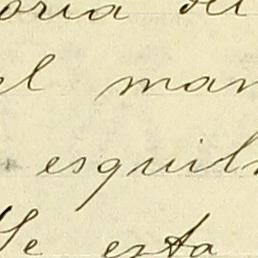 oria del
el man
esquil
Se esta